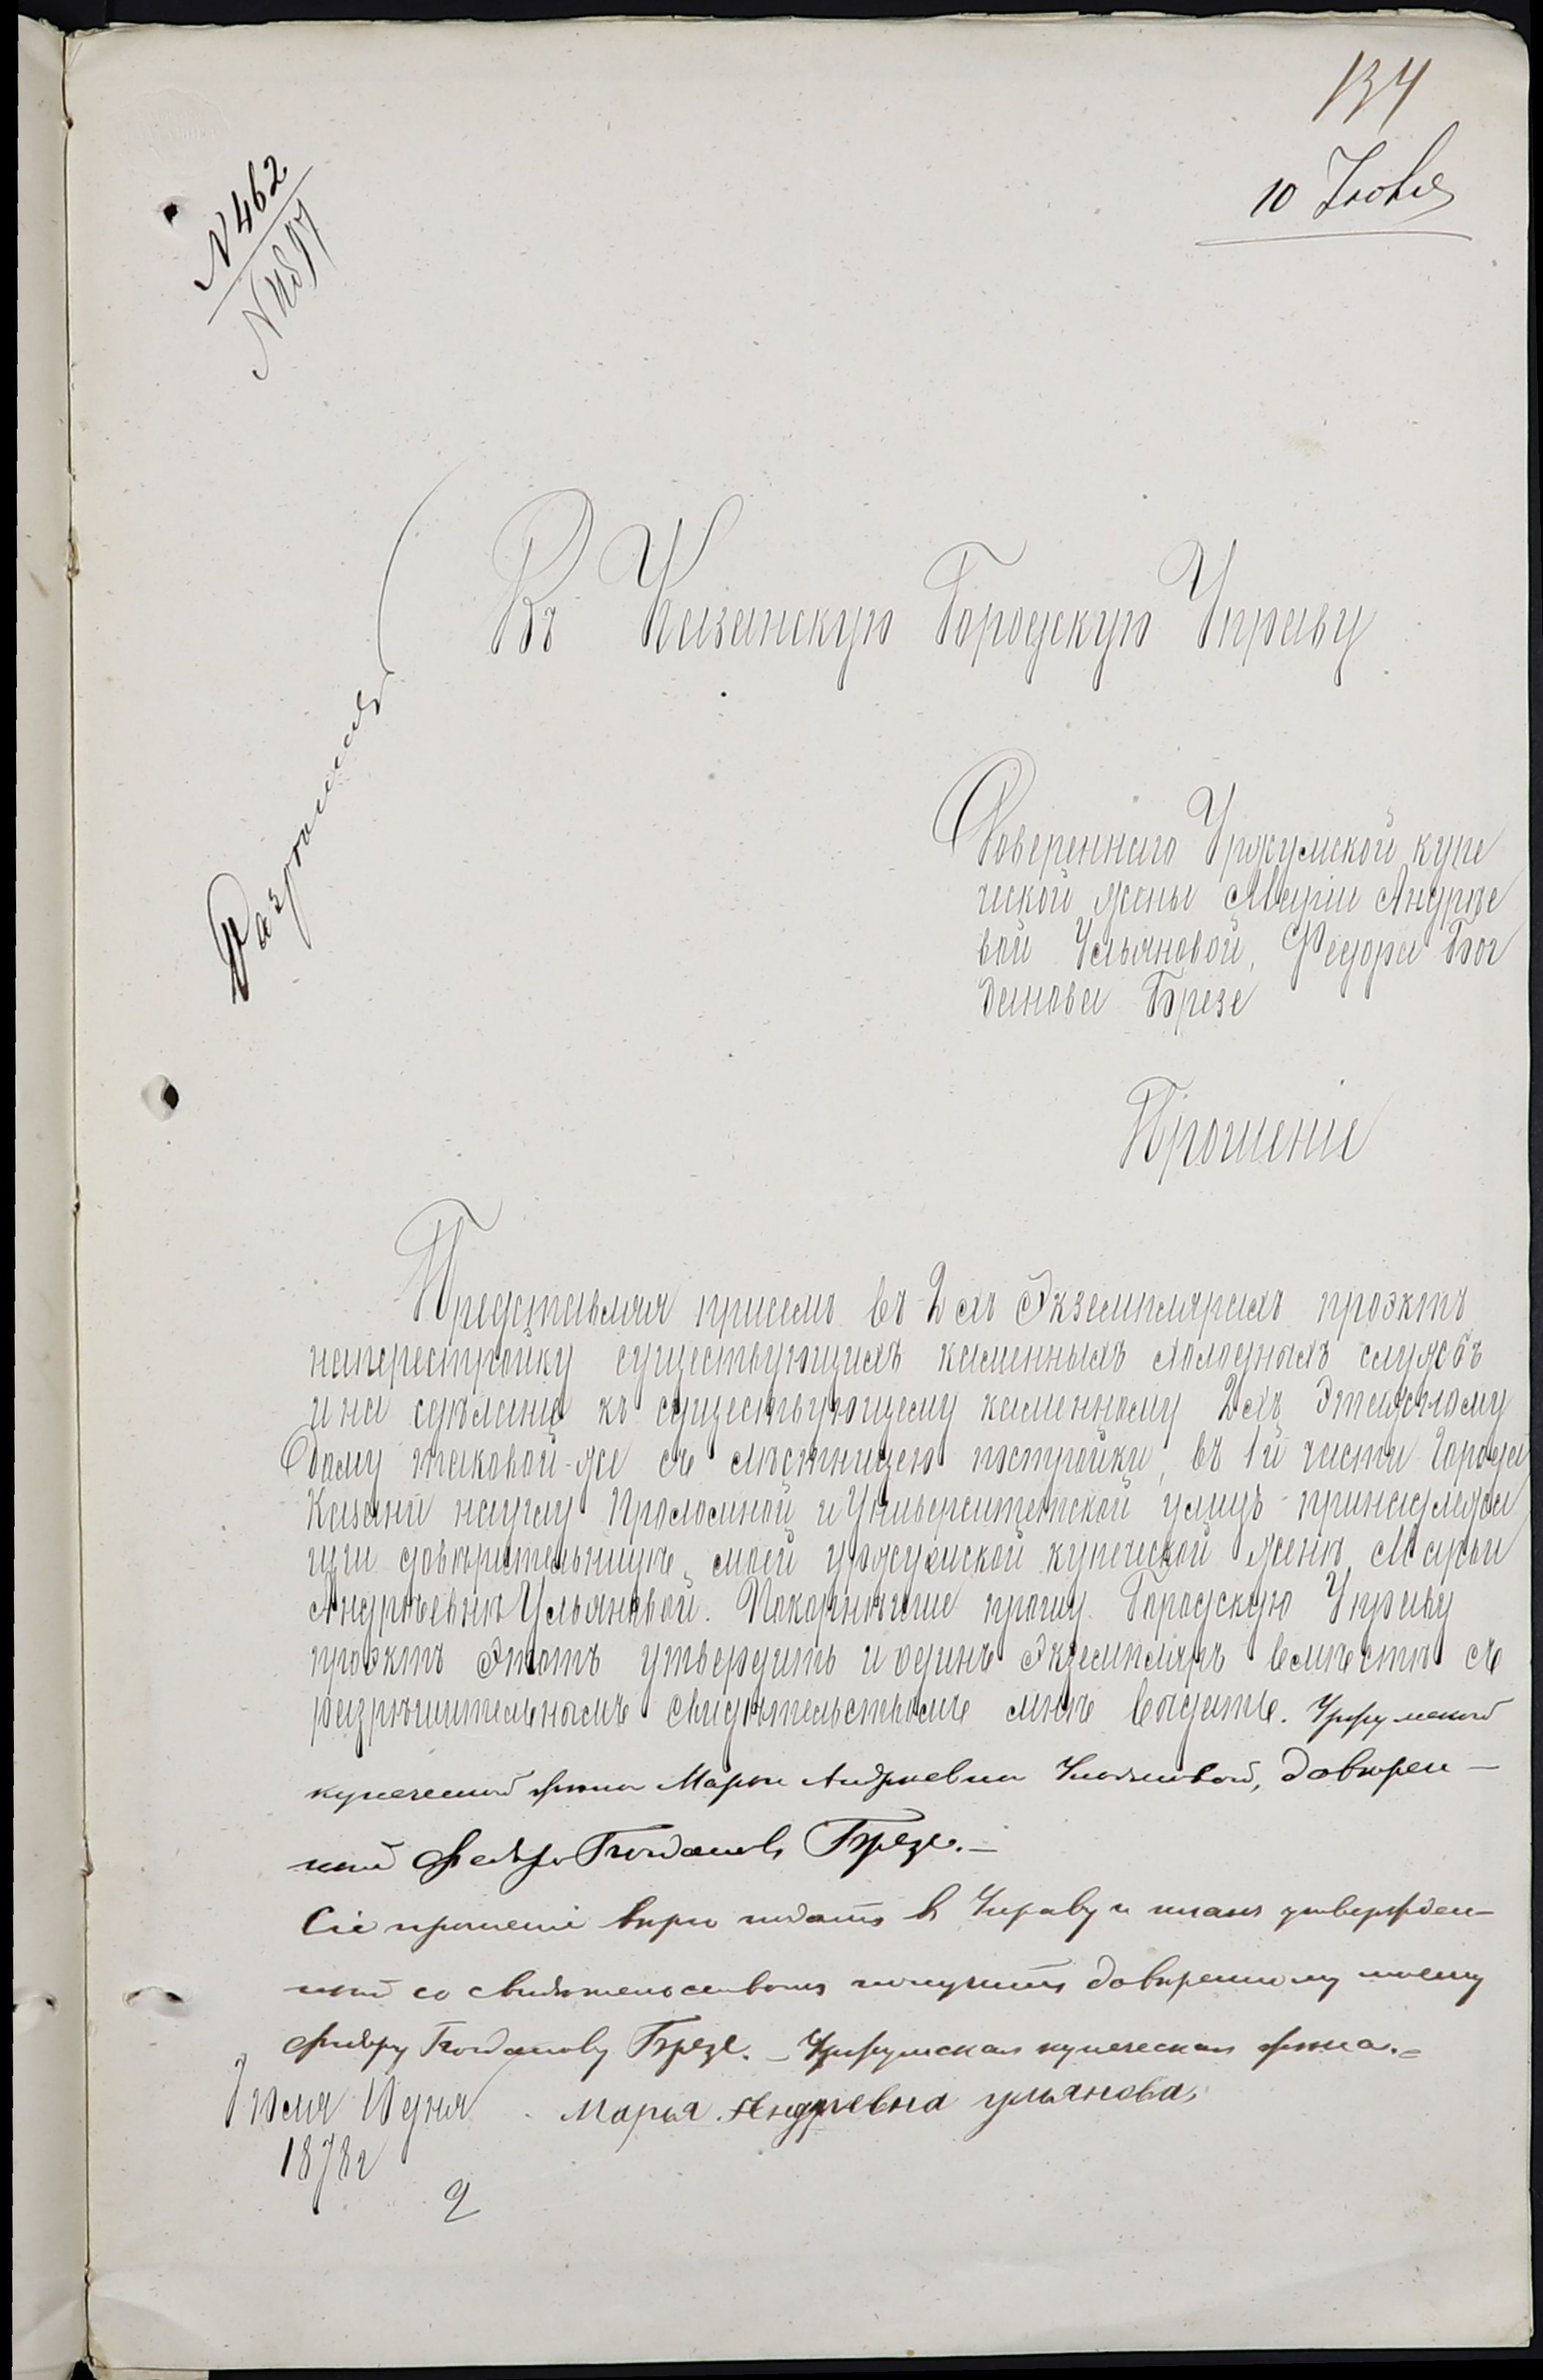 134
10 Июля
N 462
Въ Казанскую Городскую Управу
Довереннаго Уржумской купе
ческой жены Маріи Андрѣе
вой Ульяновой, Федора Бог
данова Брезе
Прошеніе
Представляя присемъ въ 2хъ Экземплярахъ проэктъ
наперестройку существующихъ каменныхъ холодныхъ службъ
и на сдѣланіе къ существующему каменному 2хъ Этажному
дому таковой-же съ лѣстницею постройки, въ 1й части города
Казани науглу Проломной и Университетской улицъ принадлежа
щіи довѣрительницѣ моей уржумской купеческой женѣ Марьи
Андрѣевнѣ Ульяновой. Покорнѣйше прошу Городскую Управу
проэктъ Этотъ утвердить и одинъ Экземпляръ вмѣстѣ съ
разрѣшительнымъ свидѣтельствомъ мнѣ выдать. Уржумской
купеческой жены Марьи Андреевны Ульяновой, довѣрен-
ный Федоръ Богдановъ Брезе.-
Сіе прошеніе вѣрю подать въ Управу и планъ утвержден-
ный со свидѣтельствомъ получить довѣренному моему
Федору Богданову Брезе. - Уржумская купеческая жена.=
Июля 10 дня Марья Андреевна ульянова,
1878г
2